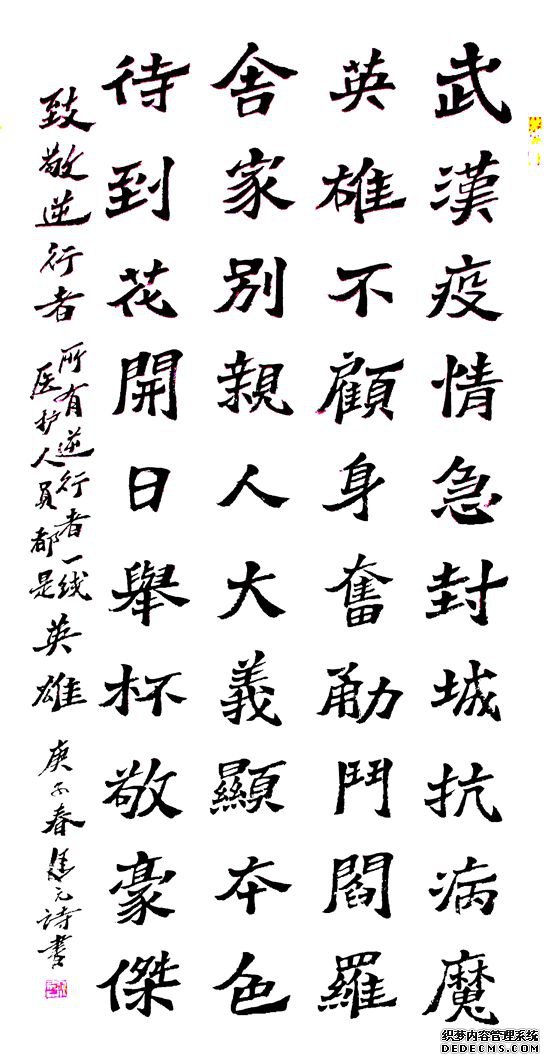 武漢疫情急封城抗病魔
英雄不顧身奮勈鬥閻羅
舍家別親人大義顯本色
待到花開日舉杯敬豪傑
致敬逆行者
所有逆行者一线
医护人員都是英雄
庚子春 元诗書
织梦内容管理系统
DEDECMS.COM